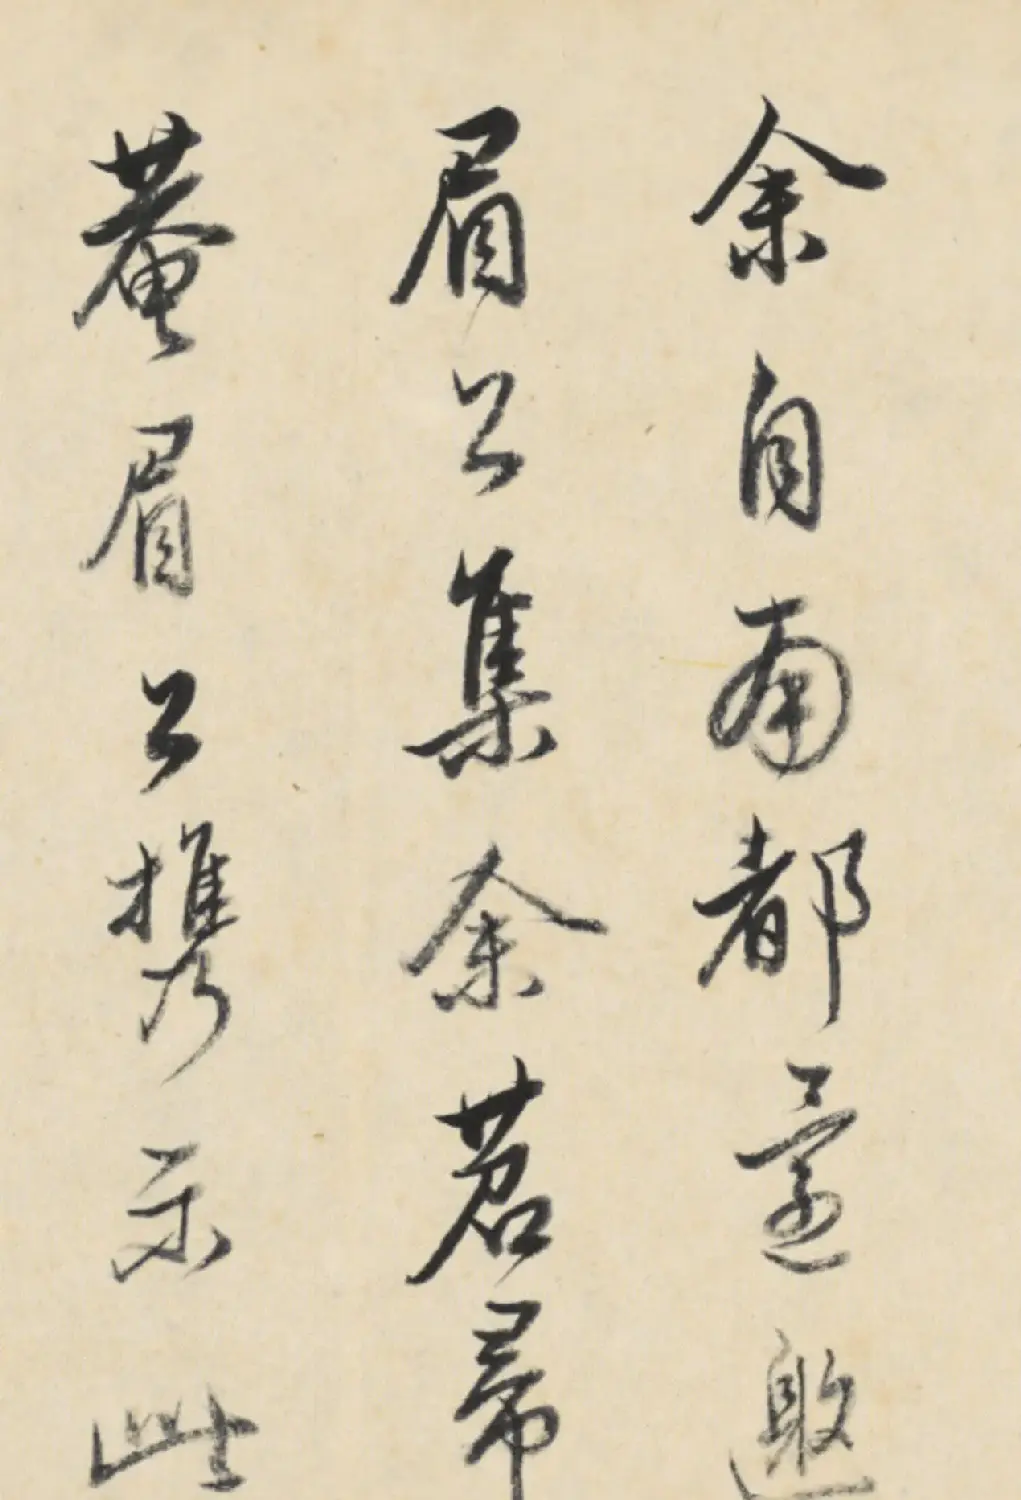 余自南都還邀
眉公集余苕帚
菴眉公攜示此